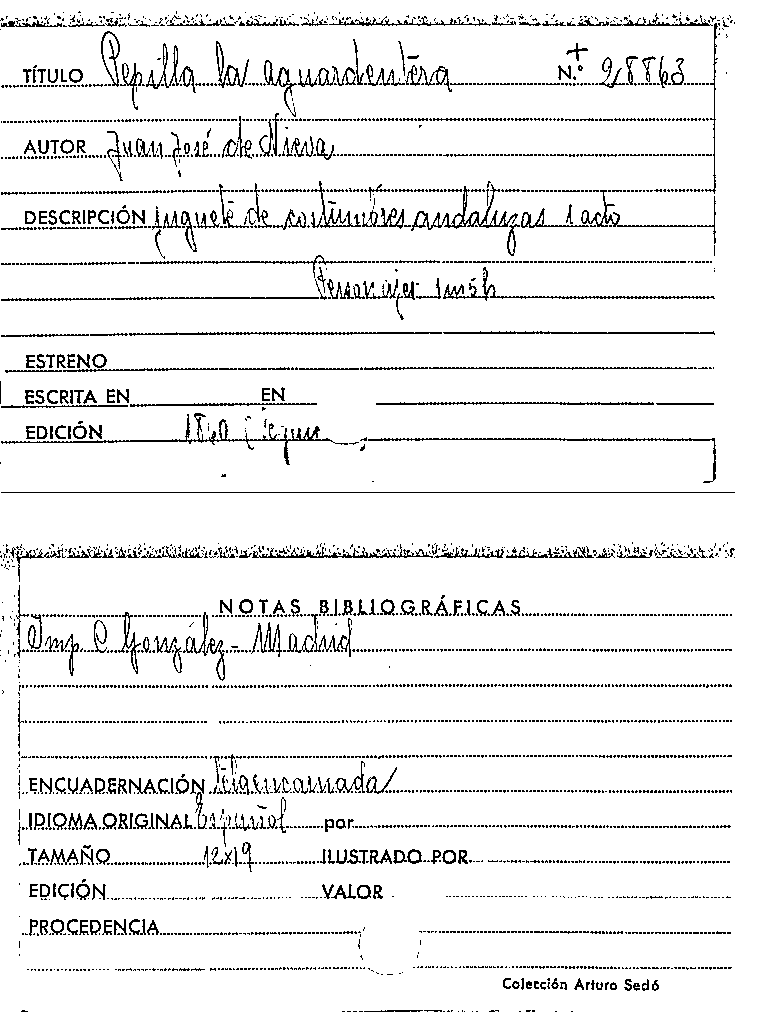 TÍTULO Pepilla la aguardentera N.º 28863
AUTOR Juan José de Nieva
DESCRIPCIÓN juguete de costumbres andaluzas 1 acto
Personajes 1m5h
ESTRENO
ESCRITA EN EN
EDICIÓN 1860
NOTAS BIBLIOGRÁFICAS
Imp. C. González - Madrid
ENCUADERNACIÓN tela encarnada
IDIOMA ORIGINAL Español por
TAMAÑO 12x19 ILUSTRADO POR
EDICIÓN VALOR
PROCEDENCIA
Colección Arturo Sedó